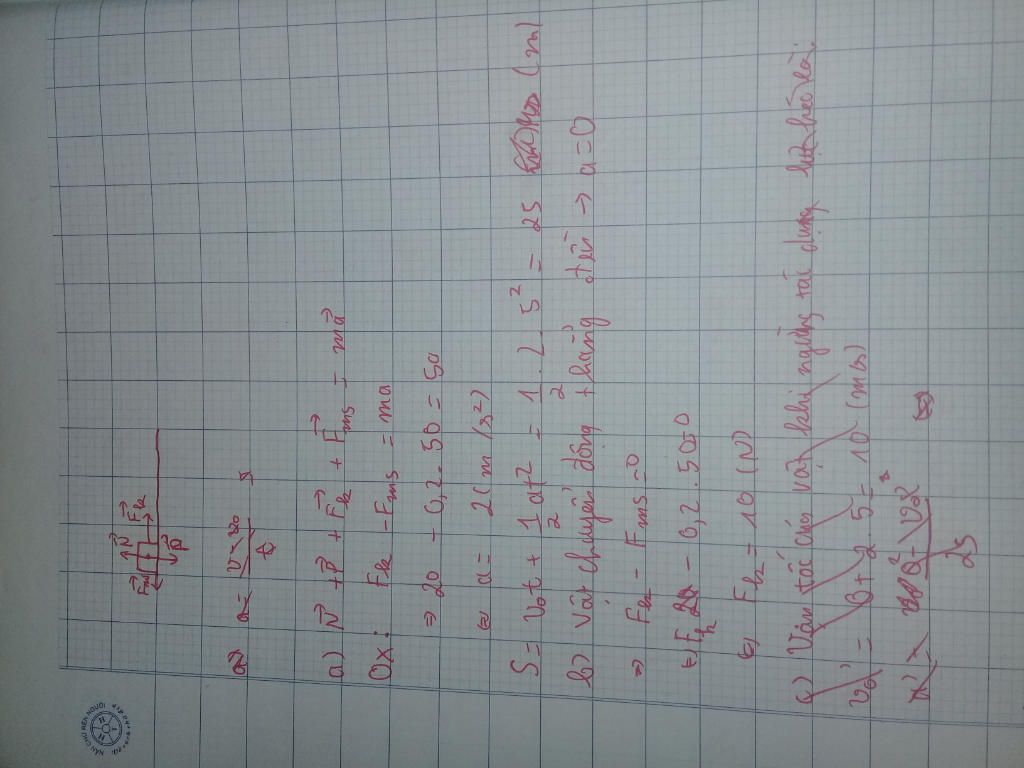 N⃗
F⃗ms F⃗k
P⃗
a) a = v - v₀ / t
a) N⃗ + P⃗ + F⃗k + F⃗ms = ma⃗
Ox: Fk - Fms = ma
⇒ 20 - 0,2.50 = 5a
⇔ a = 2(m/s²)
S = V₀t + 1/2 at2 = 1/2 . 2 . 5² = 25 (m)
b) Vật chuyển động thẳng đều → a = 0
⇒ Fk - Fms = 0
⇔ Fk - 0,2.50=0
⇔ Fk = 10 (N)
c) Vận tốc của vật khi ngừng tác dụng lực kéo
v₀' = 0 + 2.5 = 10 (m/s)
2S
NÂNG CHỮ ĐẸP NÊN NGƯỜI